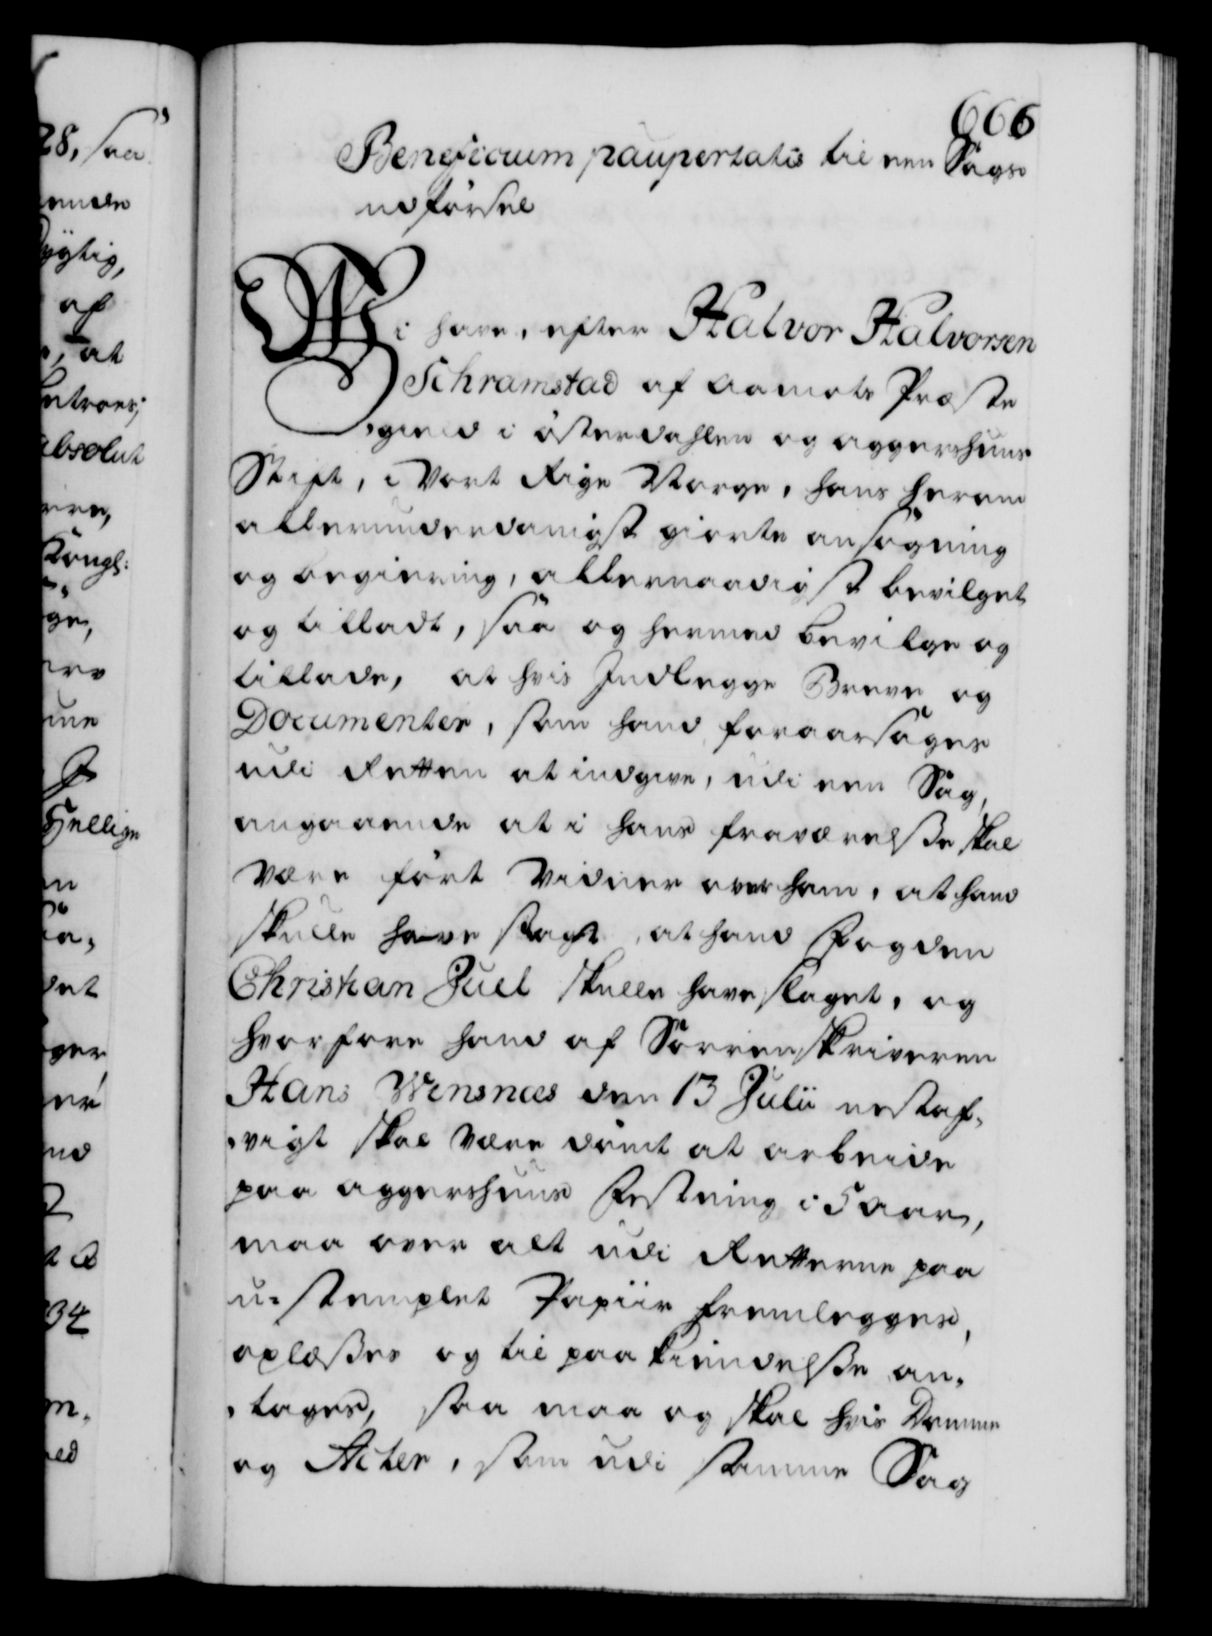 666
Beneficium paupertatis til een Sags
udførsel
Wi have, efter Halvor Halvorsen
Schramstad af Aamots Præste
gield i Østerdahlen og Aggershuus
Stift, i Vort Rige Norge, hans herom
allerunderdanigst giorte ansøgning
og begiering, allernaadigst bevilget
og tilladt, saa og hermed bevilge og
tillade, at hvis Indlegge Breve og
Documenter, som hand foraarsages
udi Retten at indgive, udi een Sag,
angaaende at i hans fraværelsse skal
være ført Vidner over ham, at hand
skulle have sagt, at hand Fogden
Christian Juel skulle have slaget, og
hvorfore hand af Sorrenskriveren
Hans Wensnæs den 13 Julii nestaf-
vigt skal være dømt at arbeide
paa Aggershuus Festning i 5 Aar,
maa over alt udi Retterne paa
u-stemplet Papiir fremlegges,
oplæsses og til paa kiendelsse an-
tages, saa maa og skal hvis Domme
og Acter, som udi samme Sag
28, saa
ende
dygtig,
af
at
absolut
Kongl:
ge,
Hellige
det
over
34